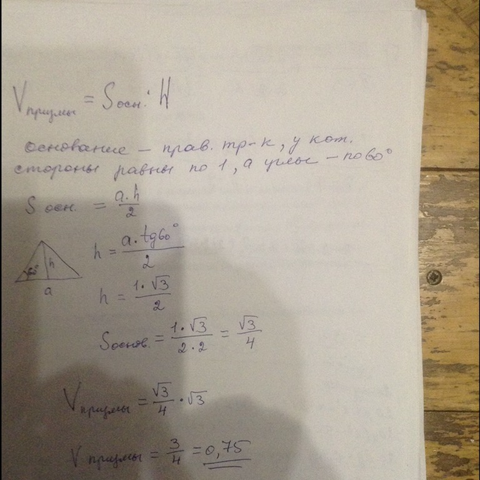 Vпризмы = Sосн · H
основание – прав. тр-к, у кот.
стороны равны по 1, а углы – по 60°
S осн = a·h/2
h = a·tg60°/2
60° h
a
h = 1·√3/2
Sоснов. = 1·√3/2·2 = √3/4
Vпризмы = √3/4 · √3
V призмы = 3/4 = 0,75